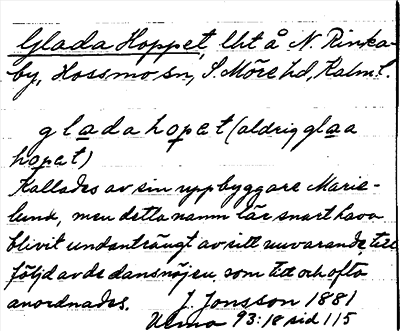 Glada Hoppet, lht å N. Rinka-
by, Hossmo sn, S. Möre hd, Kalm. l.
gladahopet (aldrig glaa
hopet)
Kallades av sin uppbyggare Marie-
lund, men detta namn lär snart hava
blivit undanträngt av sitt nuvarande till
följd av de dansnöjen, som titt och ofta
anordnades. J. Jonsson 1881
Ulma 93:18 sid 115